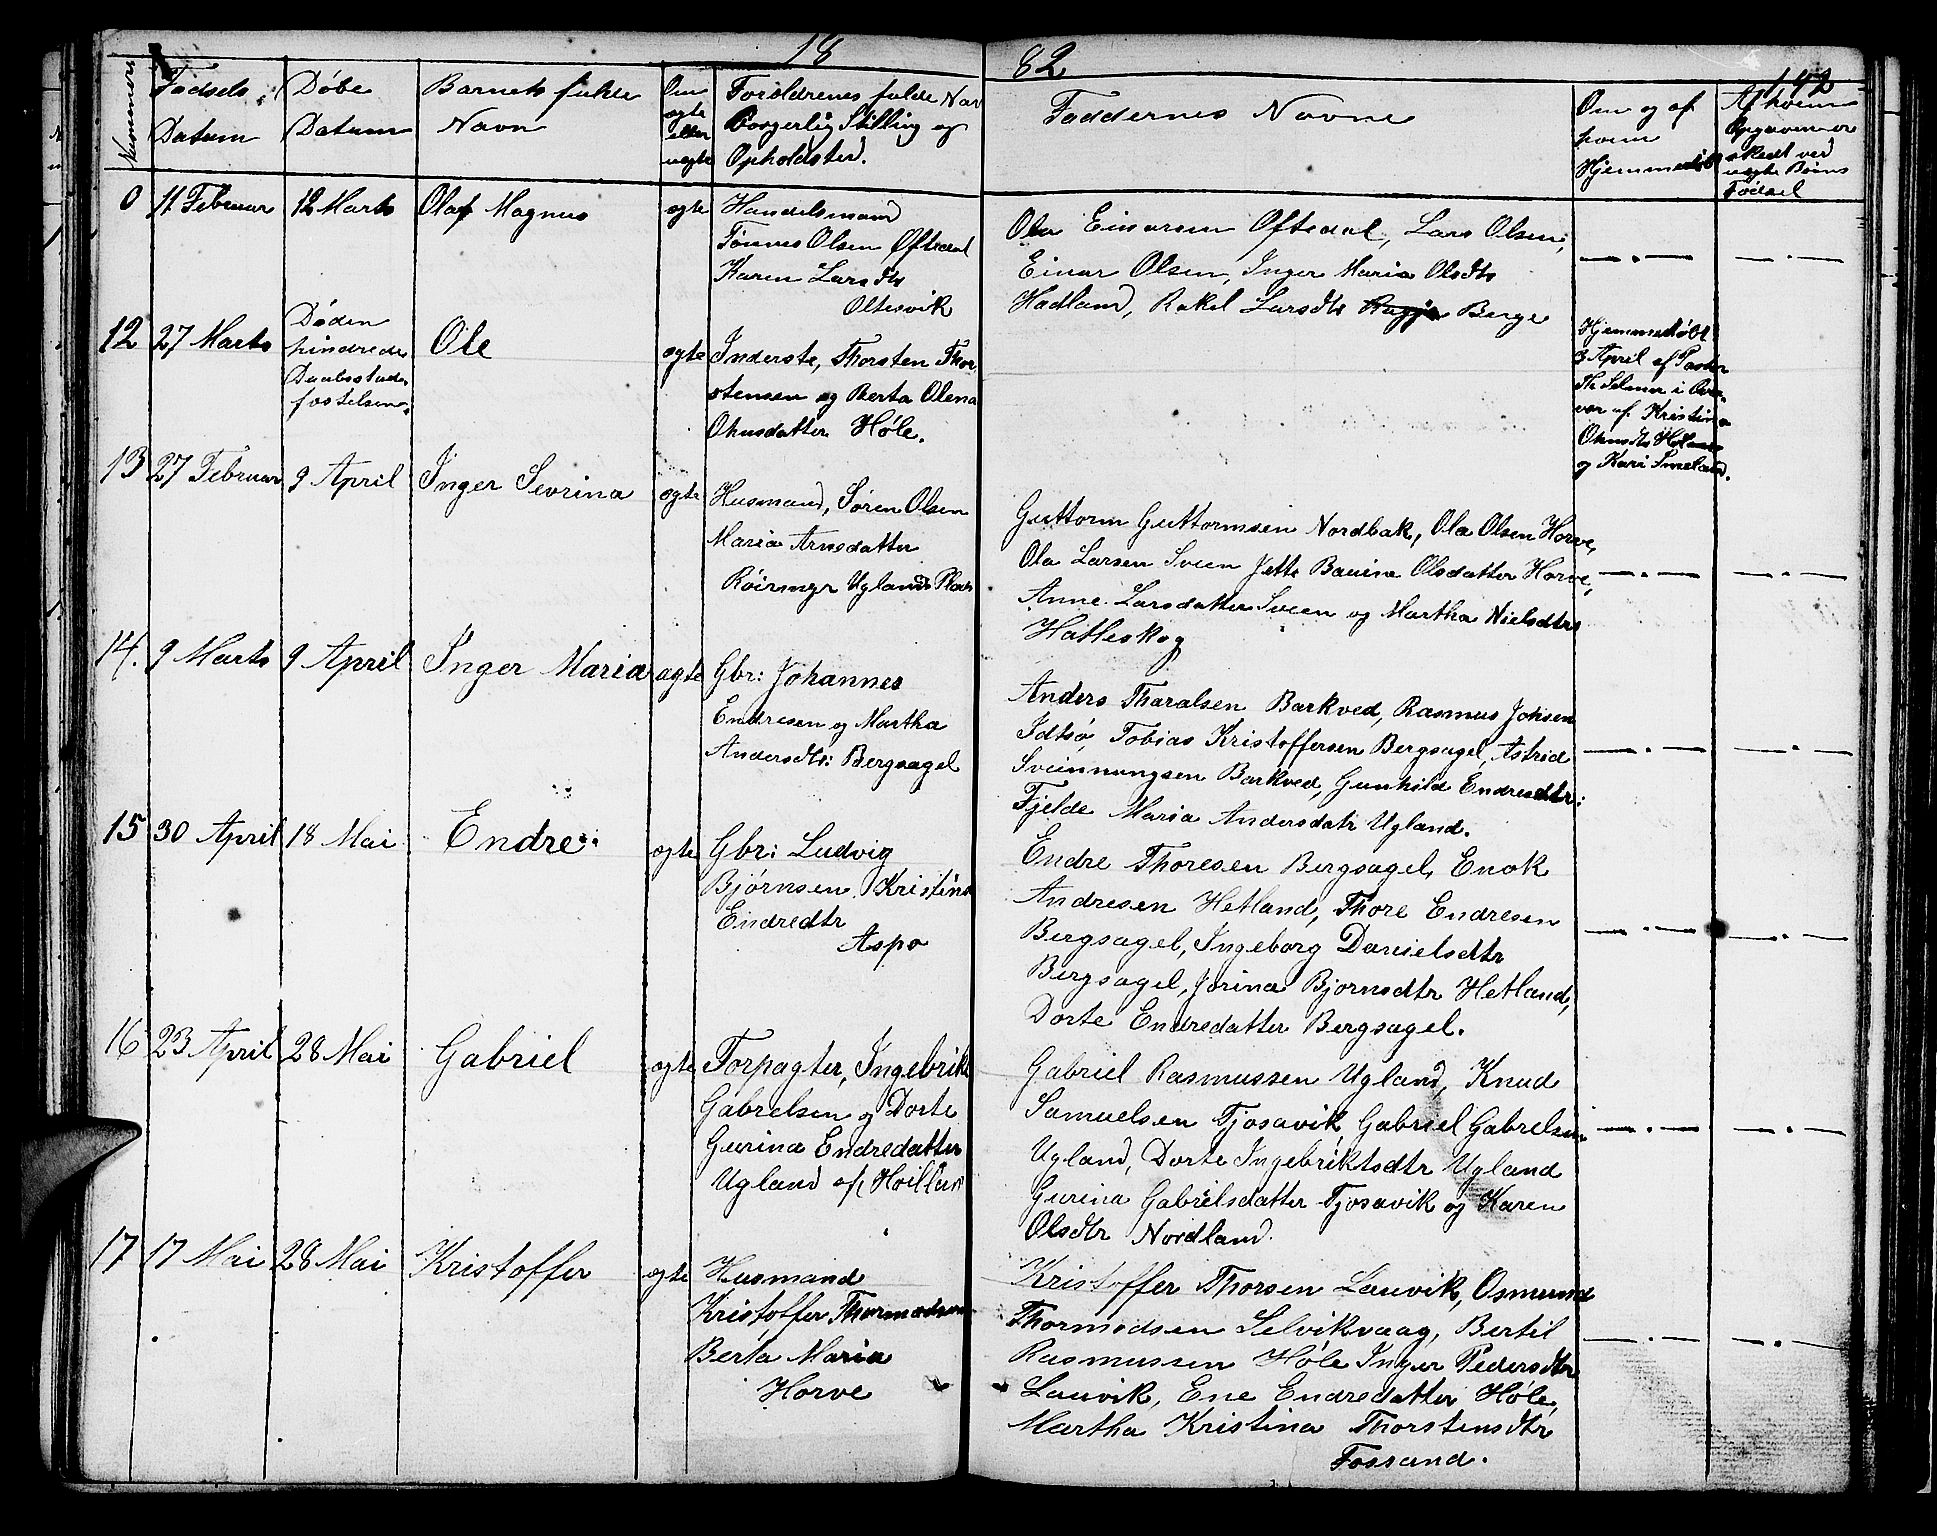 18
82
142
Nummer
Fødsels
Datum
Døbe
Datum
Barnets fulde
Navn
Om
ægte
eller
uægte
Forældrenes fulde Nav
Borgerlig Stilling og
Opholdsted.
Faddernes Navne
Om og af
hvem
Hjemmedøbt
Af hvem
Opgaven er
skedt ved
uægte Børns
Fødsel
0 11 Februar 12 Marts Olaf Magnus ægte
Handelsmand
Tønnes Olsen Øftedal
Karen Larsdtr
Oltesvik
Ola Einarsen Oftedal, Lars Olsen,
Einar Olsen, Inger Maria Olsdtr
Hadland, Rakel Larsdtr Berge
12 27 Marts
Døden
hindrede
Daabsstade-
fæstelsen.
Ole
ægte
Inderste, Thorsten Thor-
stensen og Berta Olena
Ohnsdatter Høle.
Hjemmedøbt
3 April af Pastor
Th Selmer i Over-
vær af Kristina
Ohnsdtr
og Kari
13 27 Februar 9 April Inger Sevrina ægte
Husmand, Søren Olsen
Maria Arnsdatter
Røirmyr Uglands Plads
Guttorm Guttormsen Nordbak, Ola Olsen Horve,
Ola Larsen Sveen Jette Bavine Olsdatter Horve,
Anne Larsdatter Sveen og Martha Nielsdtr
Hatleskog
14. 9 Marts 9 April Inger Maria ægte
Gbr: Johannes
Endresen og Martha
Andersdtr: Bergsagel
Anders Tharalsen Barkved, Rasmus Johsen
Idtsø, Tobias Kristoffersen Bergsagel, Astrid
Sveinnungsen Barkved, Gunhild Endresdtr:
Fjelde Maria Andersdatr Ugland.
15 30 April 18 Mai Endre ægte
Gbr: Ludvig
Bjørnsen, Kristine
Endredtr
Aspø
Endre Thoresen Bergsagel, Enok
Andresen Hetland, Thore Endresen
Bergsagel, Ingeborg Danielsdtr
Bergsagel, Jorina Bjornsdtr Hetland,
Dorte Endredatter Bergsagel.
16 23 April 28 Mai Gabriel ægte
Forpagter, Ingebrikt
Gabrelsen og Dorte
Gurina Endredatter
Ugland af
Gabriel Rasmussen Ugland, Knud
Samuelsen Tjosavik Gabriel Gabrelsen
Ugland, Dorte Ingebriktsdtr Ugland
Gurina Gabrielsdatter Tjosavik og Karen
Olsdtr Nordland.
17 17 Mai 28 Mai Kristoffer ægte
Husmand
Kristoffer Thormodsen
Berta Maria
Horve
Kristoffer Thorsen Lauvik, Osmund
Thormodsen Selvikvaag, Bertil
Rasmussen Høle Inger Pedersdtr
Lauvik, Ene Endredatter Høle,
Martha Kristina Thorstensdtr
Fossand.